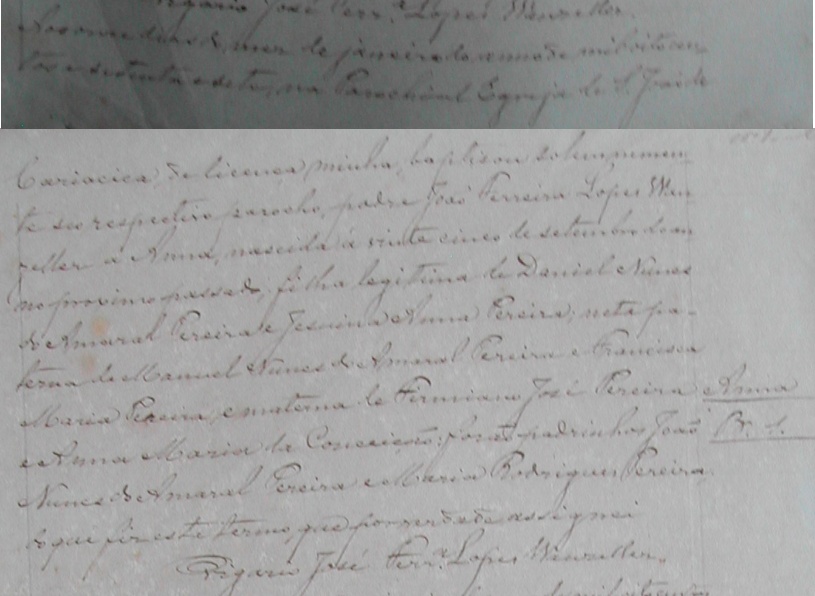 Vigario José Ferr.ª Lopes Wanzeller.
Aos onze dias do mez de janeiro do anno de mil oito cen-
tos e setenta e sete, na Parochial Egreja de S. João de
Cariacica, de licença minha, baptisou solemnemen-
te seo respectivo parocho, padre João Ferreira Lopes Wan-
zeller a Anna, nascida á vinte cinco de setembro do an-
no proximo passado, filha legitima de Daniel Nunes
do Amaral Pereira e Jesuina Anna Pereira; neta pa-
terna de Manuel Nunes do Amaral Pereira e Francisca
Maria Pereira, e materna de Firmiano José Pereira
e Anna Maria da Conceição: forão padrinhos João
Nunes do Amaral Pereira e Maria Rodrigues Pereira,
do que fiz este termo, que por verdade assignei
Vigario José Ferr.ª Lopes Wanzeller.
Anna